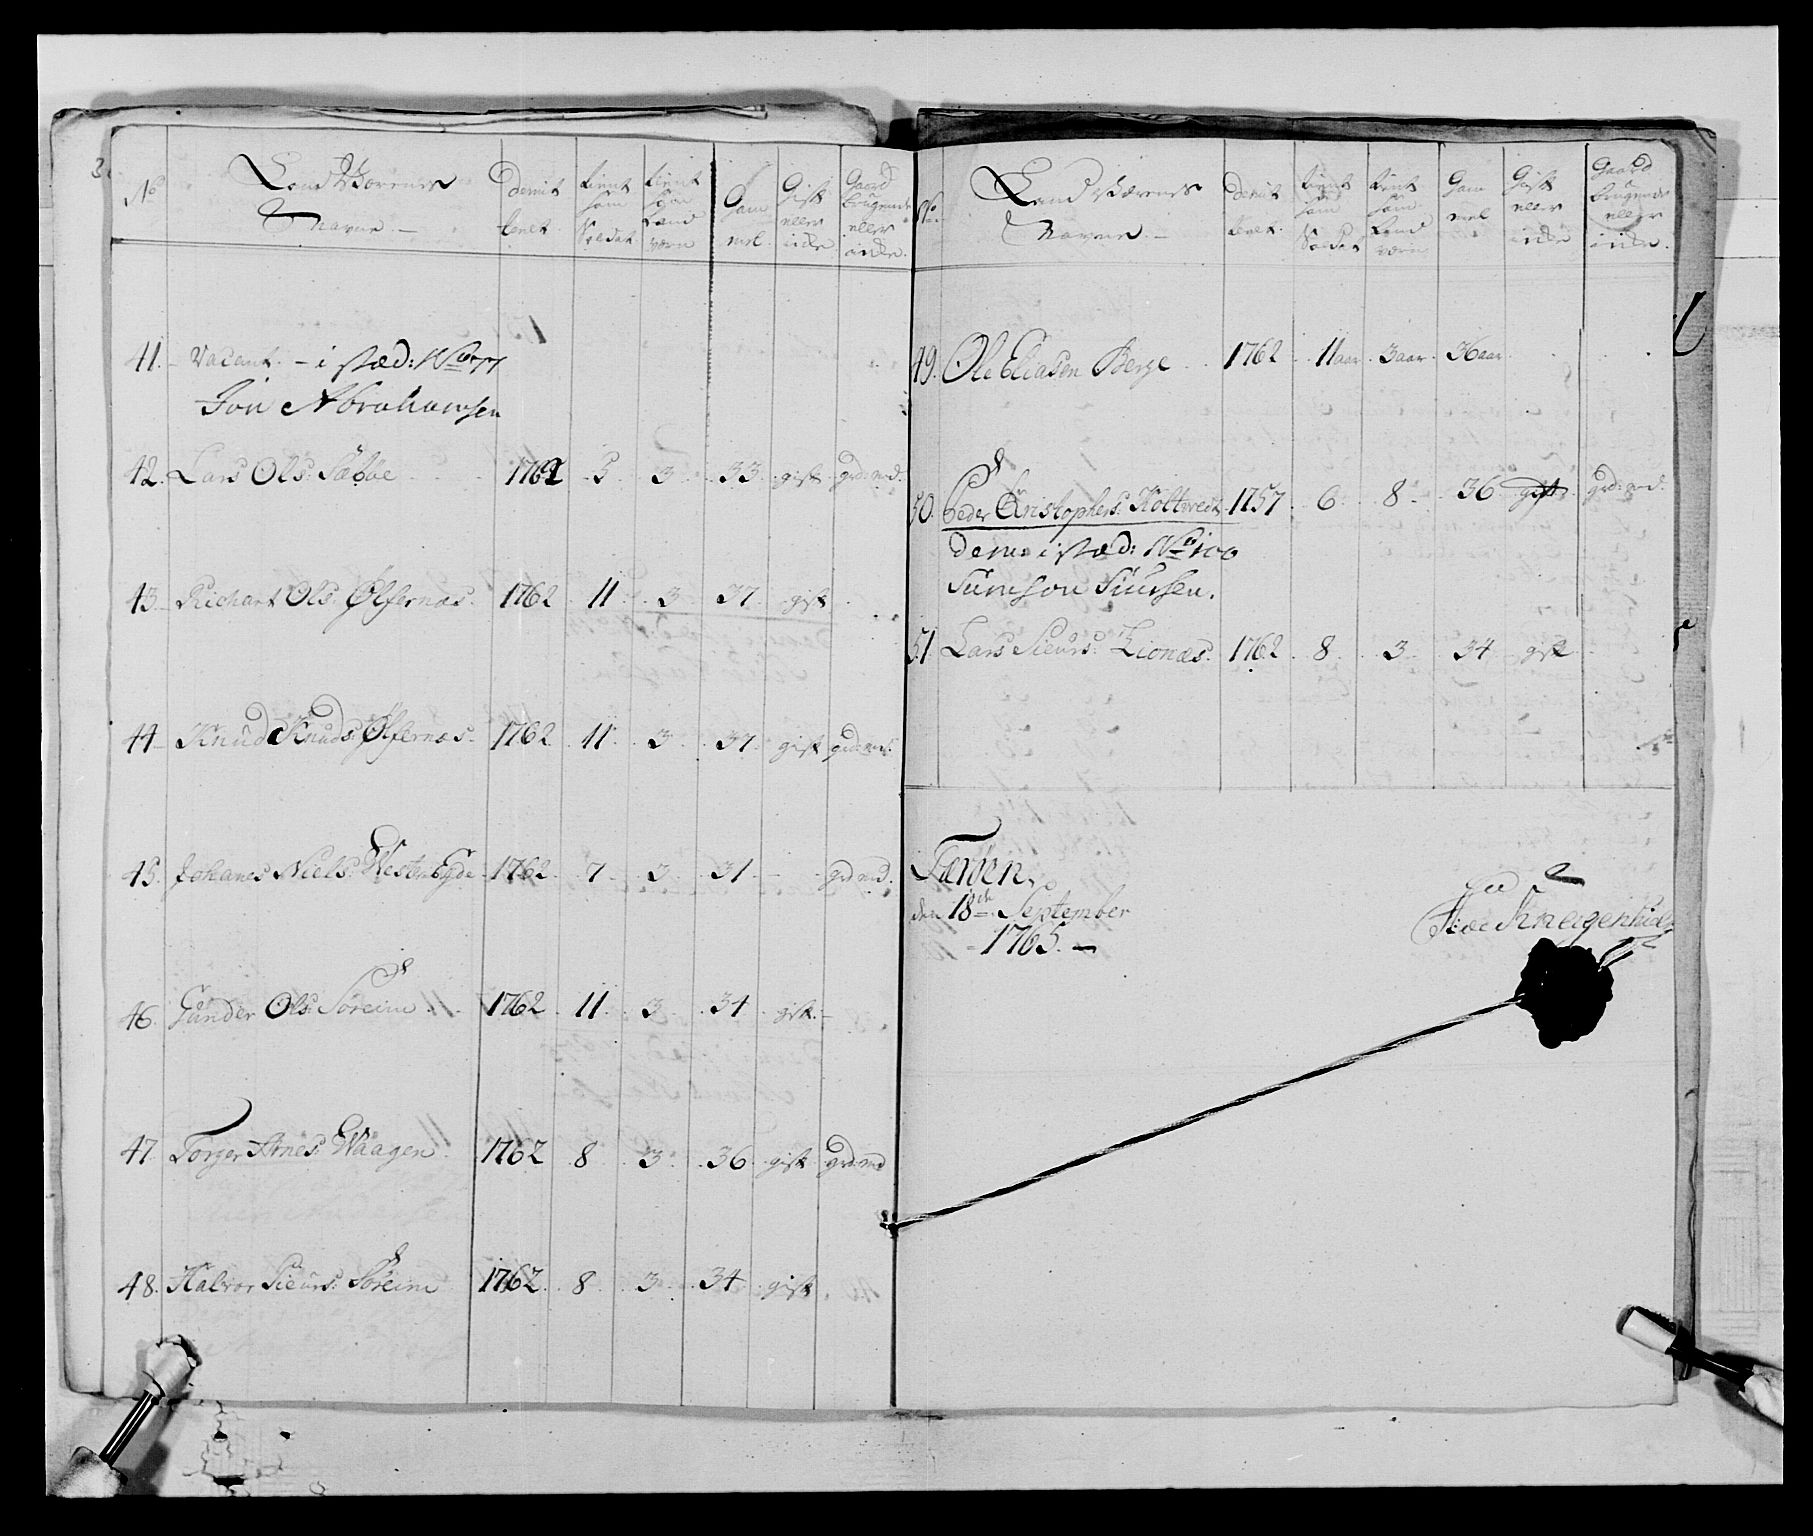 No
Land Værenes
Navne
Demit
teret
tient
som
Soldat
tient
som
Land
værn
Gam
mel
Gift
eller
icke
Gaard
brugende
eller
icke.
41. Vacant. - i stæd: No 77
Jon Abrahamsen
42. Lars Ols: Sæbøe 1762 5 3 33 gift grd:md.
43. Richart Ols: Ølfernæs. 1762 11 3 37 gift
44 Knud Knuds: Ølfernæs. 1762 11 3 37 gift grd:md.
45. Johanes Niels: Westerbÿde 1762 7 3 31 - grd:md.
46. Gunder Ols: Søreim 1762 11 3 34 gift. -
47. Torger Arnes: Waagen 1762 8 3 36 gift grd:md
48. Halvor Sieurs: Søreim 1762 8 3 34 gift
No
Land Værenes
Navne
Demit
teret.
tient
som
Soldat
tient
som
Land
værn
Gam
mel
Gift
eller
icke
Gaard
brugende
eller
icke.
49. Ole Eliasen Berge 1762 11 aar 3 aar 36 aar
50. Peder Christophers: Koltvedt 1757 6 8 36 gift grd:md.
Dem i stæd: No 100
Simson Siursen.
51. Lars Sieurs: Lionæs. 1762 8 3 34 gift
Færøen,
den 18de September
1765.